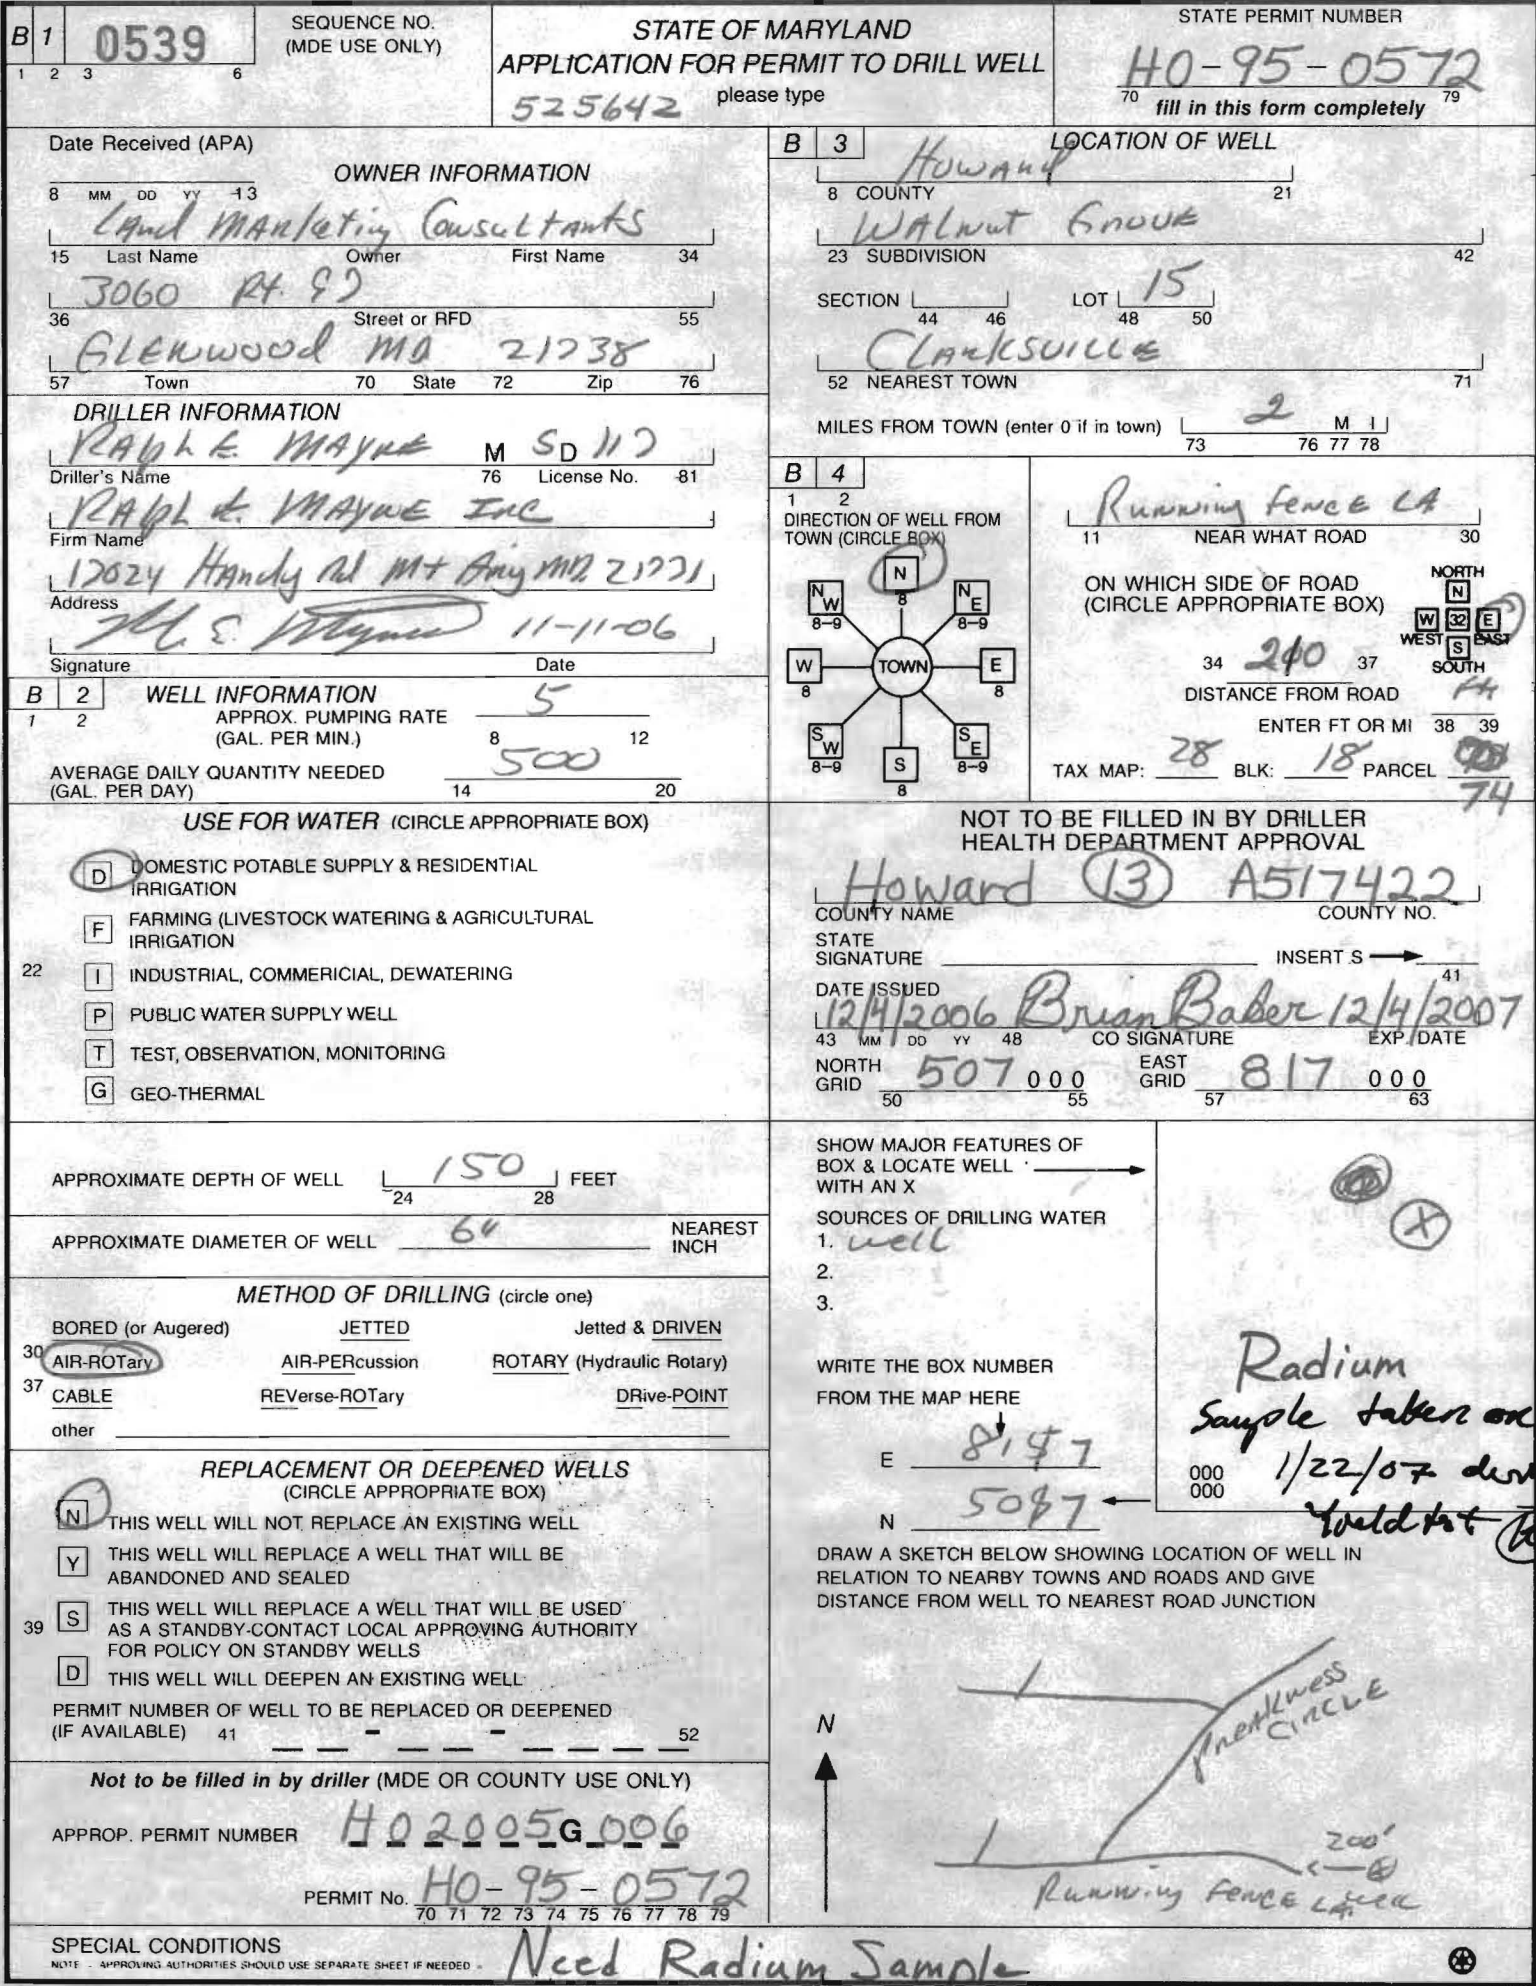 B 1 0539
1 2 3 6
SEQUENCE NO.
(MDE USE ONLY)
STATE OF MARYLAND
APPLICATION FOR PERMIT TO DRILL WELL
please type
525642
STATE PERMIT NUMBER
HO-95-0572
70 79
fill in this form completely
Date Received (APA)
8 MM DD YY 13
OWNER INFORMATION
LAnd MArketing Consultants
15 Last Name Owner First Name 34
3060 Rt. 97
36 Street or RFD 55
GLENwood MD 21738
57 Town 70 State 72 Zip 76
DRILLER INFORMATION
RAlph E. MAYNE M SD 117
Driller's Name 76 License No. 81
RAlph E. MAYNE Inc
Firm Name
17024 HAndy Rd Mt Airy MD. 21771
Address
11-11-06
Signature Date
B 2 WELL INFORMATION
1 2
APPROX. PUMPING RATE 5
(GAL. PER MIN.) 8 12
AVERAGE DAILY QUANTITY NEEDED 500
(GAL. PER DAY) 14 20
USE FOR WATER (CIRCLE APPROPRIATE BOX)
D DOMESTIC POTABLE SUPPLY & RESIDENTIAL
IRRIGATION
F FARMING (LIVESTOCK WATERING & AGRICULTURAL
IRRIGATION
22 I INDUSTRIAL, COMMERICIAL, DEWATERING
P PUBLIC WATER SUPPLY WELL
T TEST, OBSERVATION, MONITORING
G GEO-THERMAL
APPROXIMATE DEPTH OF WELL 150 FEET
24 28
APPROXIMATE DIAMETER OF WELL 6" NEAREST
INCH
METHOD OF DRILLING (circle one)
BORED (or Augered) JETTED Jetted & DRIVEN
30 AIR-ROTary AIR-PERcussion ROTARY (Hydraulic Rotary)
37 CABLE REVerse-ROTary DRive-POINT
other
REPLACEMENT OR DEEPENED WELLS
(CIRCLE APPROPRIATE BOX)
N THIS WELL WILL NOT REPLACE AN EXISTING WELL
Y THIS WELL WILL REPLACE A WELL THAT WILL BE
ABANDONED AND SEALED
39 S THIS WELL WILL REPLACE A WELL THAT WILL BE USED
AS A STANDBY-CONTACT LOCAL APPROVING AUTHORITY
FOR POLICY ON STANDBY WELLS
D THIS WELL WILL DEEPEN AN EXISTING WELL
PERMIT NUMBER OF WELL TO BE REPLACED OR DEEPENED
(IF AVAILABLE) 41 - - 52
Not to be filled in by driller (MDE OR COUNTY USE ONLY)
APPROP. PERMIT NUMBER HO2005G006
PERMIT No. HO-95-0572
70 71 72 73 74 75 76 77 78 79
B 3 LOCATION OF WELL
Howard
8 COUNTY 21
WAlnut Grove
23 SUBDIVISION 42
SECTION LOT 15
44 46 48 50
CLArkSVILLE
52 NEAREST TOWN 71
MILES FROM TOWN (enter 0 if in town) 2 M I
73 76 77 78
B 4
1 2
DIRECTION OF WELL FROM
TOWN (CIRCLE BOX)
N
8
NW NE
8-9 8-9
W TOWN E
8 8
SW SE
8-9 8-9
S
8
Running Fence LA
11 NEAR WHAT ROAD 30
ON WHICH SIDE OF ROAD
(CIRCLE APPROPRIATE BOX)
NORTH
N
W 32 E
WEST EAST
S
SOUTH
34 210 37
DISTANCE FROM ROAD Ft
ENTER FT OR MI 38 39
TAX MAP: 28 BLK: 18 PARCEL
74
NOT TO BE FILLED IN BY DRILLER
HEALTH DEPARTMENT APPROVAL
Howard 13 A517422
COUNTY NAME COUNTY NO.
STATE
SIGNATURE INSERT S
41
DATE ISSUED
12/4/2006 Brian Baker 12/4/2007
43 MM DD YY 48 CO SIGNATURE EXP. DATE
NORTH
GRID 507 000
50 55
EAST
GRID 817 000
57 63
SHOW MAJOR FEATURES OF
BOX & LOCATE WELL
WITH AN X
X
SOURCES OF DRILLING WATER
1. well
2.
3.
WRITE THE BOX NUMBER
FROM THE MAP HERE
E 8157
N 5087
Radium
Sample taken on
000 1/22/07
000
Yield test
DRAW A SKETCH BELOW SHOWING LOCATION OF WELL IN
RELATION TO NEARBY TOWNS AND ROADS AND GIVE
DISTANCE FROM WELL TO NEAREST ROAD JUNCTION
N
Preakness
CIRCLE
200'
Running Fence LA
SPECIAL CONDITIONS
NOTE - APPROVING AUTHORITIES SHOULD USE SEPARATE SHEET IF NEEDED -
Need Radium Sample